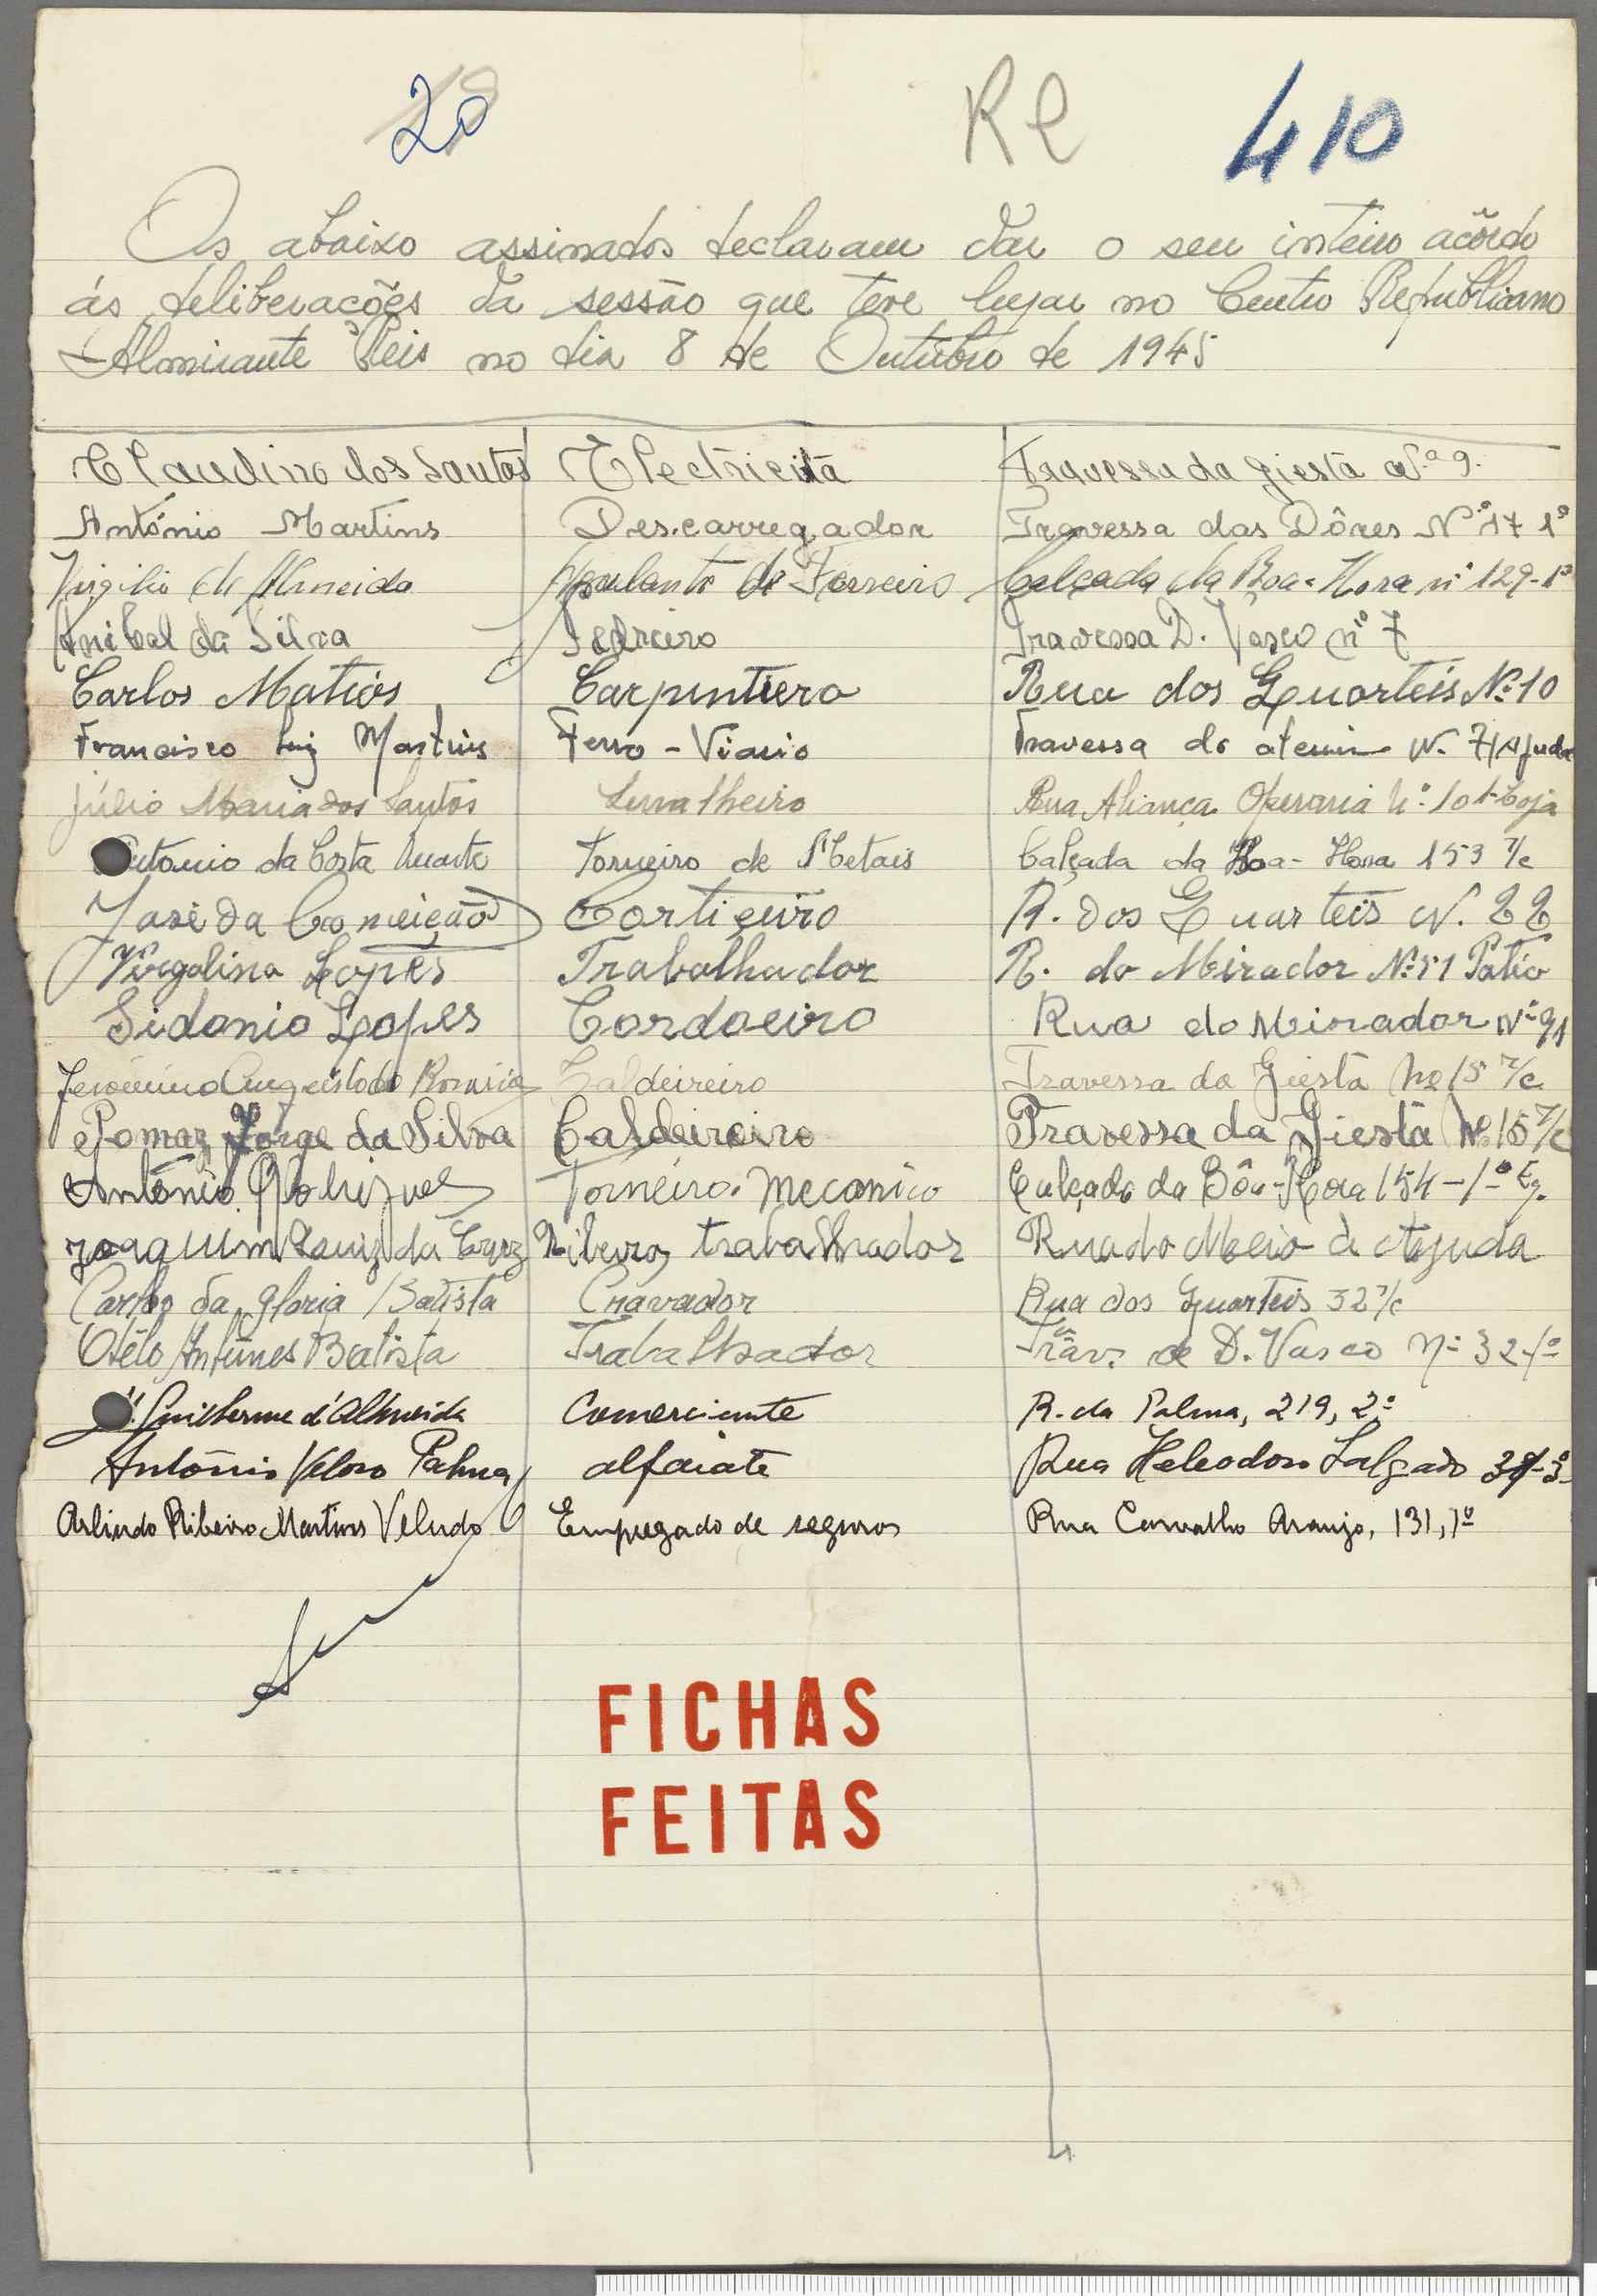 20
Re 410
Os abaixo assinados declaram dar o seu inteiro acôrdo
ás deliberações da sessão que teve lugar no Centro Republicano
Almirante Reis no dia 8 de Outubro de 1945
Claudino dos Santos Electricista Travessa da Giesta N.º 9.
António Martins Descarregador Travessa das Dôres Nº 17 1º
Virgilio de Almeida Ajudante de Ferreiro Calçada da Boa-Hora nº 129-1º
Anibal da Silva Pedreiro Travessa D. Vasco nº 7
Carlos Matios Carpintiero Rua dos Quarteis Nº 10
Francisco Luiz Martins Ferro-Viario Travessa do N. 7 Ajuda
Júlio Maria dos Santos Serralheiro Rua Aliança Operaria Nº 101-Loja
António da Costa Duarte Torneiro de Metais Calçada da Boa-Hora 153 r/c
José da Conceição Corticeiro R. dos Quarteis N. 22
Virgolino Lopes Trabalhador R. do Mirador Nº 51 Patio
Sidonio Lopes Cordoeiro Rua do Mirador Nº 91
Jeronimo Augusto do Rosario Caldeireiro Travessa da Giesta No 15 r/c
Tomaz Jorge da Silva Caldeireiro Travessa da Giesta No 15 r/c
António Rodrigues Torneiro Mecanico Calçada da Bôa-Hora 154-1º Eq.
Joaquim Luiz da Cruz Ribeiro trabalhador Rua do Meio á Ajuda
Carlos da Gloria Batista Cravador Rua dos Quarteis 32 r/c
Otélo Antunes Batista Trabalhador Trav. de D. Vasco Nº 32-1º
Guilherme d'Almeida Comerciante R. da Palma, 219, 2º
António Veloso Palma alfaiate Rua Heleodoro Salgado 37-3º
Arlindo Ribeiro Martins Veludo Empregado de seguros Rua Carvalho Araujo, 131, 1º
FICHAS
FEITAS